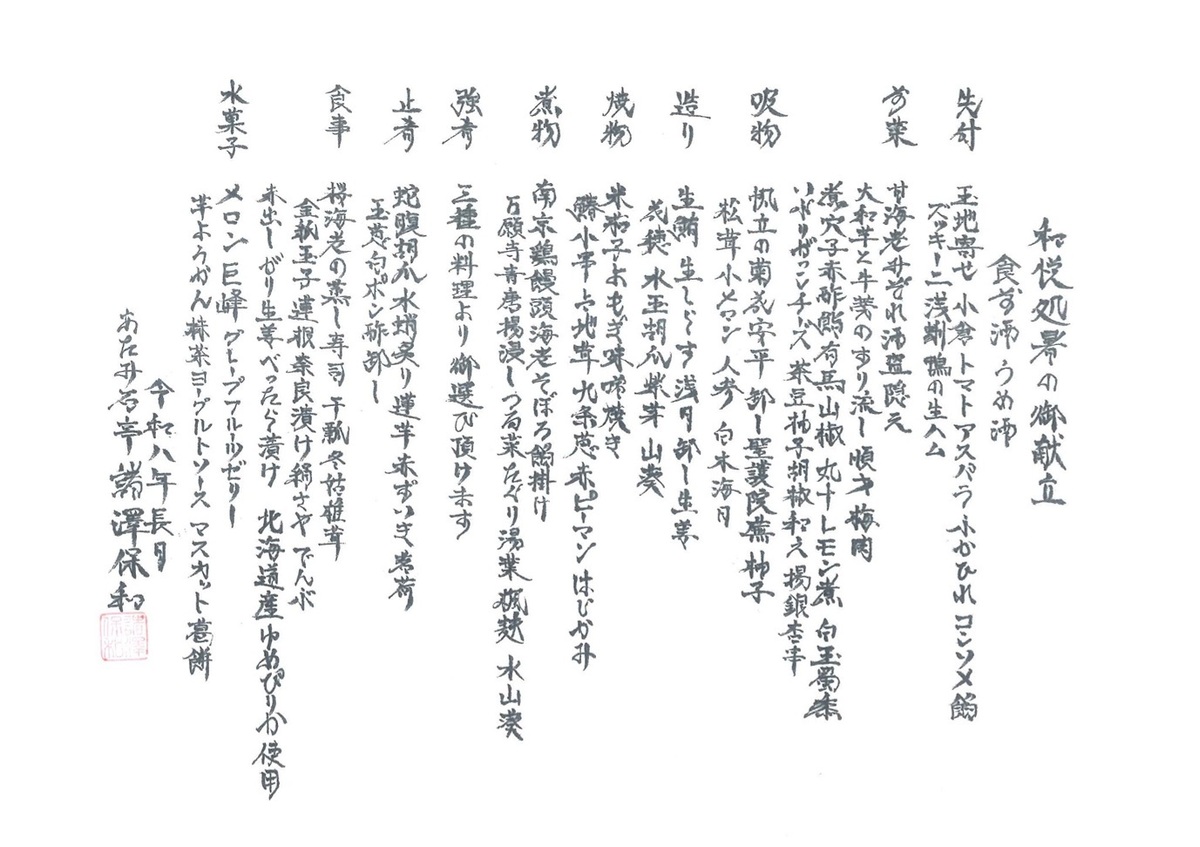 和悦処暑の御献立
食前酒 うめ酒
先付 玉地寄せ 小倉トマト アスパラ ふかひれ コンソメ餡
ズッキーニ浅漬 鴨の生ハム
前菜 甘海老みぞれ酒盗隠元
大和芋と牛蒡のすり流し 順才 梅肉
煮穴子赤酢餡有馬山椒 丸十レモン煮 白玉蜀黍
いぶりがっこチーズ 菜豆柚子胡椒和え 揚銀杏串
吸物 帆立の菊花字平 卸し聖護院蕪 柚子
松茸 小メロン 人参 白木海月
造り 生鮪 生しらす 浅月 卸し生姜
花穂 水玉胡瓜 紫芽 山葵
焼物 米茄子よもぎ味噌焼き
鰆小串 占地茸 九条葱 赤ピーマン はじかみ
煮物 南京鶏饅頭海老そぼろ餡掛け
万願寺青唐揚浸し つる菜 たぐり湯葉 楓麩 水山葵
強肴 三種の料理より御選び頂けます
止肴 蛇腹胡瓜 水蛸炙り 蓮芋 赤ずいき 茗荷
玉葱白ポン酢卸し
食事 桜海老の蒸し寿司 干瓢 冬姑 椎茸
金糸玉子 蓮根 奈良漬け 絹さや でんぶ
赤出し がり生姜 べったら漬け 北海道産ゆめぴりか使用
水菓子 メロン 巨峰 グレープフルーツゼリー
芋ようかん 抹茶ヨーグルトソース マスカット葛餅
令和八年長月
あたみ石亭 諸澤保和